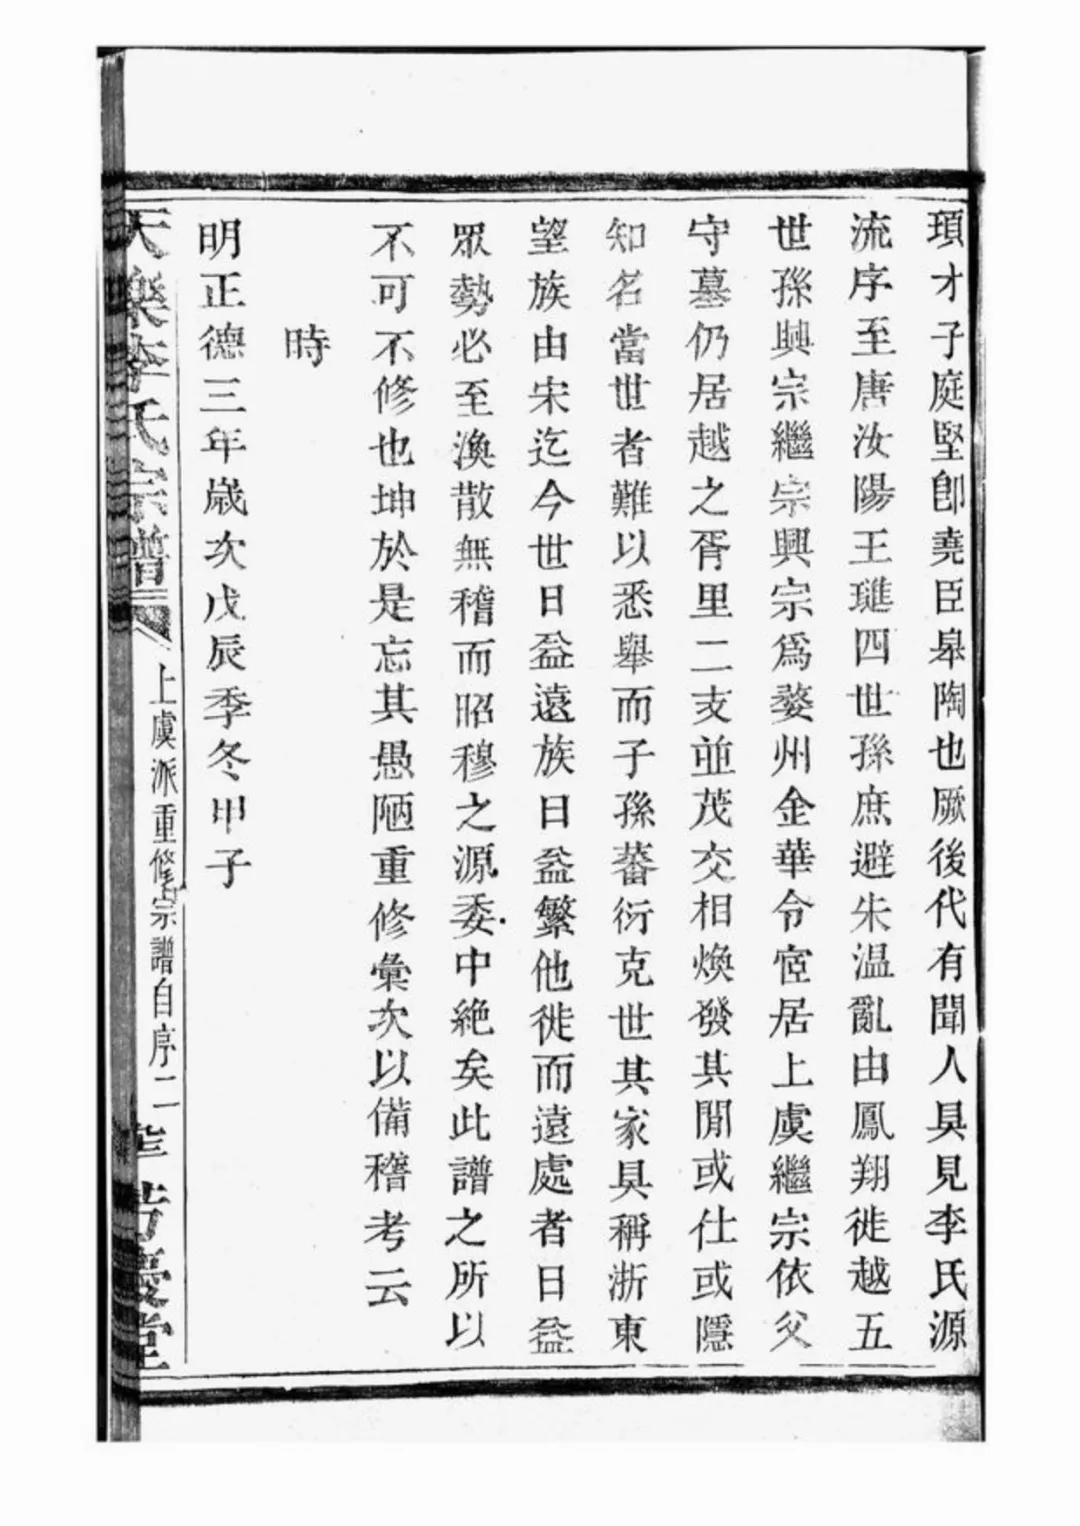 頊才子庭堅卽堯臣皋陶也厥後代有聞人具見李氏源
流序至唐汝陽王璡四世孫庶避朱温亂由鳳翔徙越五
世孫興宗繼宗興宗爲婺州金華令宦居上虞繼宗依父
守墓仍居越之胥里二支並茂交相煥發其閒或仕或隱
知名當世者難以悉舉而子孫蕃衍克世其家具稱浙東
望族由宋迄今世日益遠族日益繁他徙而遠處者日益
眾勢必至渙散無稽而昭穆之源委中絶矣此譜之所以
不可不修也坤於是忘其愚陋重修彙次以備稽考云
時
明正德三年歲次戊辰季冬甲子
天樂李氏宗譜
上虞派重修宗譜自序二
堂